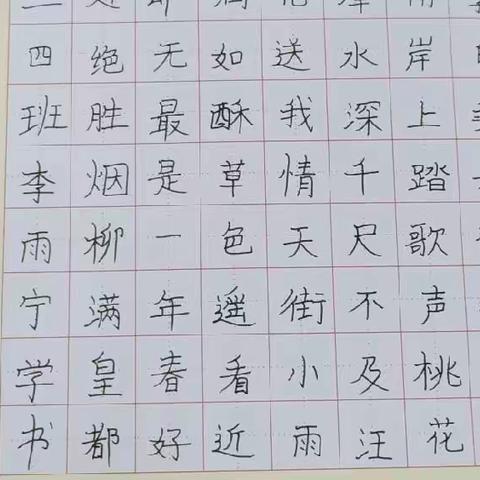 岸上踏歌声桃花
水深千尺不及汪
送我情天街小雨
如酥草色遥看近
无最是一年春好
绝胜烟柳满皇都
四班李雨宁学书